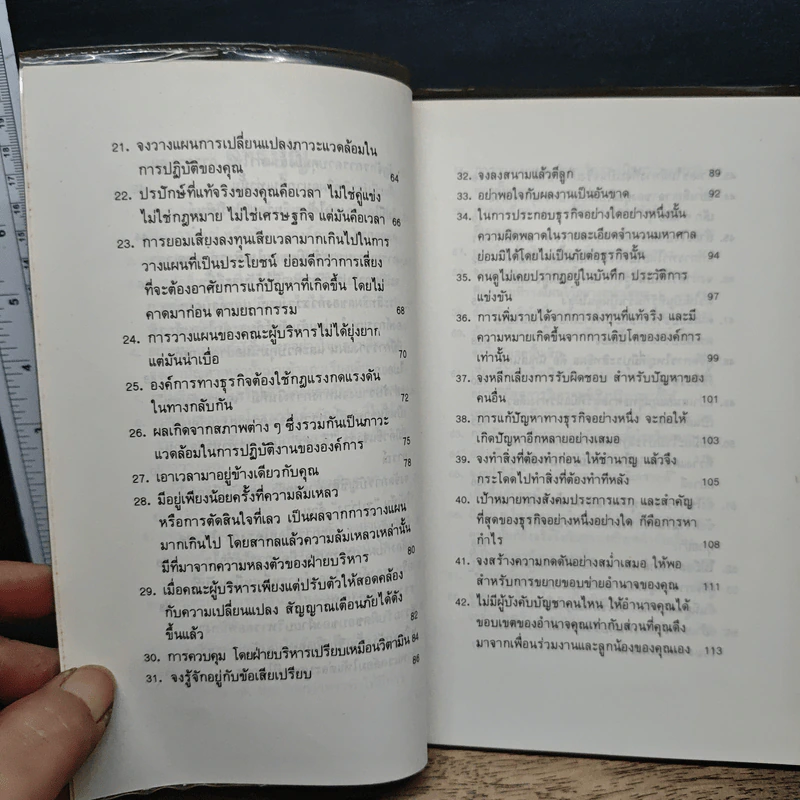 21. จงวางแผนการเปลี่ยนแปลงภาวะแวดล้อมใน
การปฏิบัติของคุณ 64
22. ปรปักษ์ที่แท้จริงของคุณคือเวลา ไม่ใช่คู่แข่ง
ไม่ใช่กฎหมาย ไม่ใช่เศรษฐกิจ แต่มันคือเวลา 66
23. การยอมเสี่ยงลงทุนเสียเวลามากเกินไปในการ
วางแผนที่เป็นประโยชน์ ย่อมดีกว่าการเสี่ยง
ที่จะต้องอาศัยการแก้ปัญหาที่เกิดขึ้น โดยไม่
คาดมาก่อน ตามยถากรรม 68
24. การวางแผนของคณะผู้บริหารไม่ได้ยุ่งยาก
แต่มันน่าเบื่อ 70
25. องค์การทางธุรกิจต้องใช้กฎแรงกดแรงดัน
ในทางกลับกัน 72
26. ผลเกิดจากสภาพต่าง ๆ ซึ่งรวมกันเป็นภาวะ
แวดล้อมในการปฏิบัติงานขององค์การ 75
27. เอาเวลามาอยู่ข้างเดียวกับคุณ 78
28. มีอยู่เพียงน้อยครั้งที่ความล้มเหลว
หรือการตัดสินใจที่เลว เป็นผลจากการวางแผน
มากเกินไป โดยสากลแล้วความล้มเหลวเหล่านั้น
มีที่มาจากความหลงตัวของฝ่ายบริหาร 80
29. เมื่อคณะผู้บริหารเพียงแต่ปรับตัวให้สอดคล้อง
กับความเปลี่ยนแปลง สัญญาณเตือนภัยได้ดัง
ขึ้นแล้ว 82
30. การควบคุม โดยฝ่ายบริหารเปรียบเหมือนวิตามิน 84
31. จงรู้จักอยู่กับข้อเสียเปรียบ 86
32. จงลงสนามแล้วตีลูก 89
33. อย่าพอใจกับผลงานเป็นอันขาด 92
34. ในการประกอบธุรกิจอย่างใดอย่างหนึ่งนั้น
ความผิดพลาดในรายละเอียดจำนวนมหาศาล
ย่อมมีได้โดยไม่เป็นภัยต่อธุรกิจนั้น 94
35. คนดูไม่เคยปรากฏอยู่ในบันทึก ประวัติการ
แข่งขัน 97
36. การเพิ่มรายได้จากการลงทุนที่แท้จริง และมี
ความหมายเกิดขึ้นจากการเติบโตขององค์การ
เท่านั้น 99
37. จงหลีกเลี่ยงการรับผิดชอบ สำหรับปัญหาของ
คนอื่น 101
38. การแก้ปัญหาทางธุรกิจอย่างหนึ่ง จะก่อให้
เกิดปัญหาอีกหลายอย่างเสมอ 103
39. จงทำสิ่งที่ต้องทำก่อน ให้ชำนาญ แล้วจึง
กระโดดไปทำสิ่งที่ต้องทำทีหลัง 105
40. เป้าหมายทางสังคมประการแรก และสำคัญ
ที่สุดของธุรกิจอย่างหนึ่งอย่างใด ก็คือการหา
กำไร 108
41. จงสร้างความกดดันอย่างสม่ำเสมอ ให้พอ
สำหรับการขยายขอบข่ายอำนาจของคุณ 111
42. ไม่มีผู้บังคับบัญชาคนไหน ให้อำนาจคุณได้
ขอบเขตของอำนาจคุณเท่ากับส่วนที่คุณดึง
มาจากเพื่อนร่วมงานและลูกน้องของคุณเอง 113